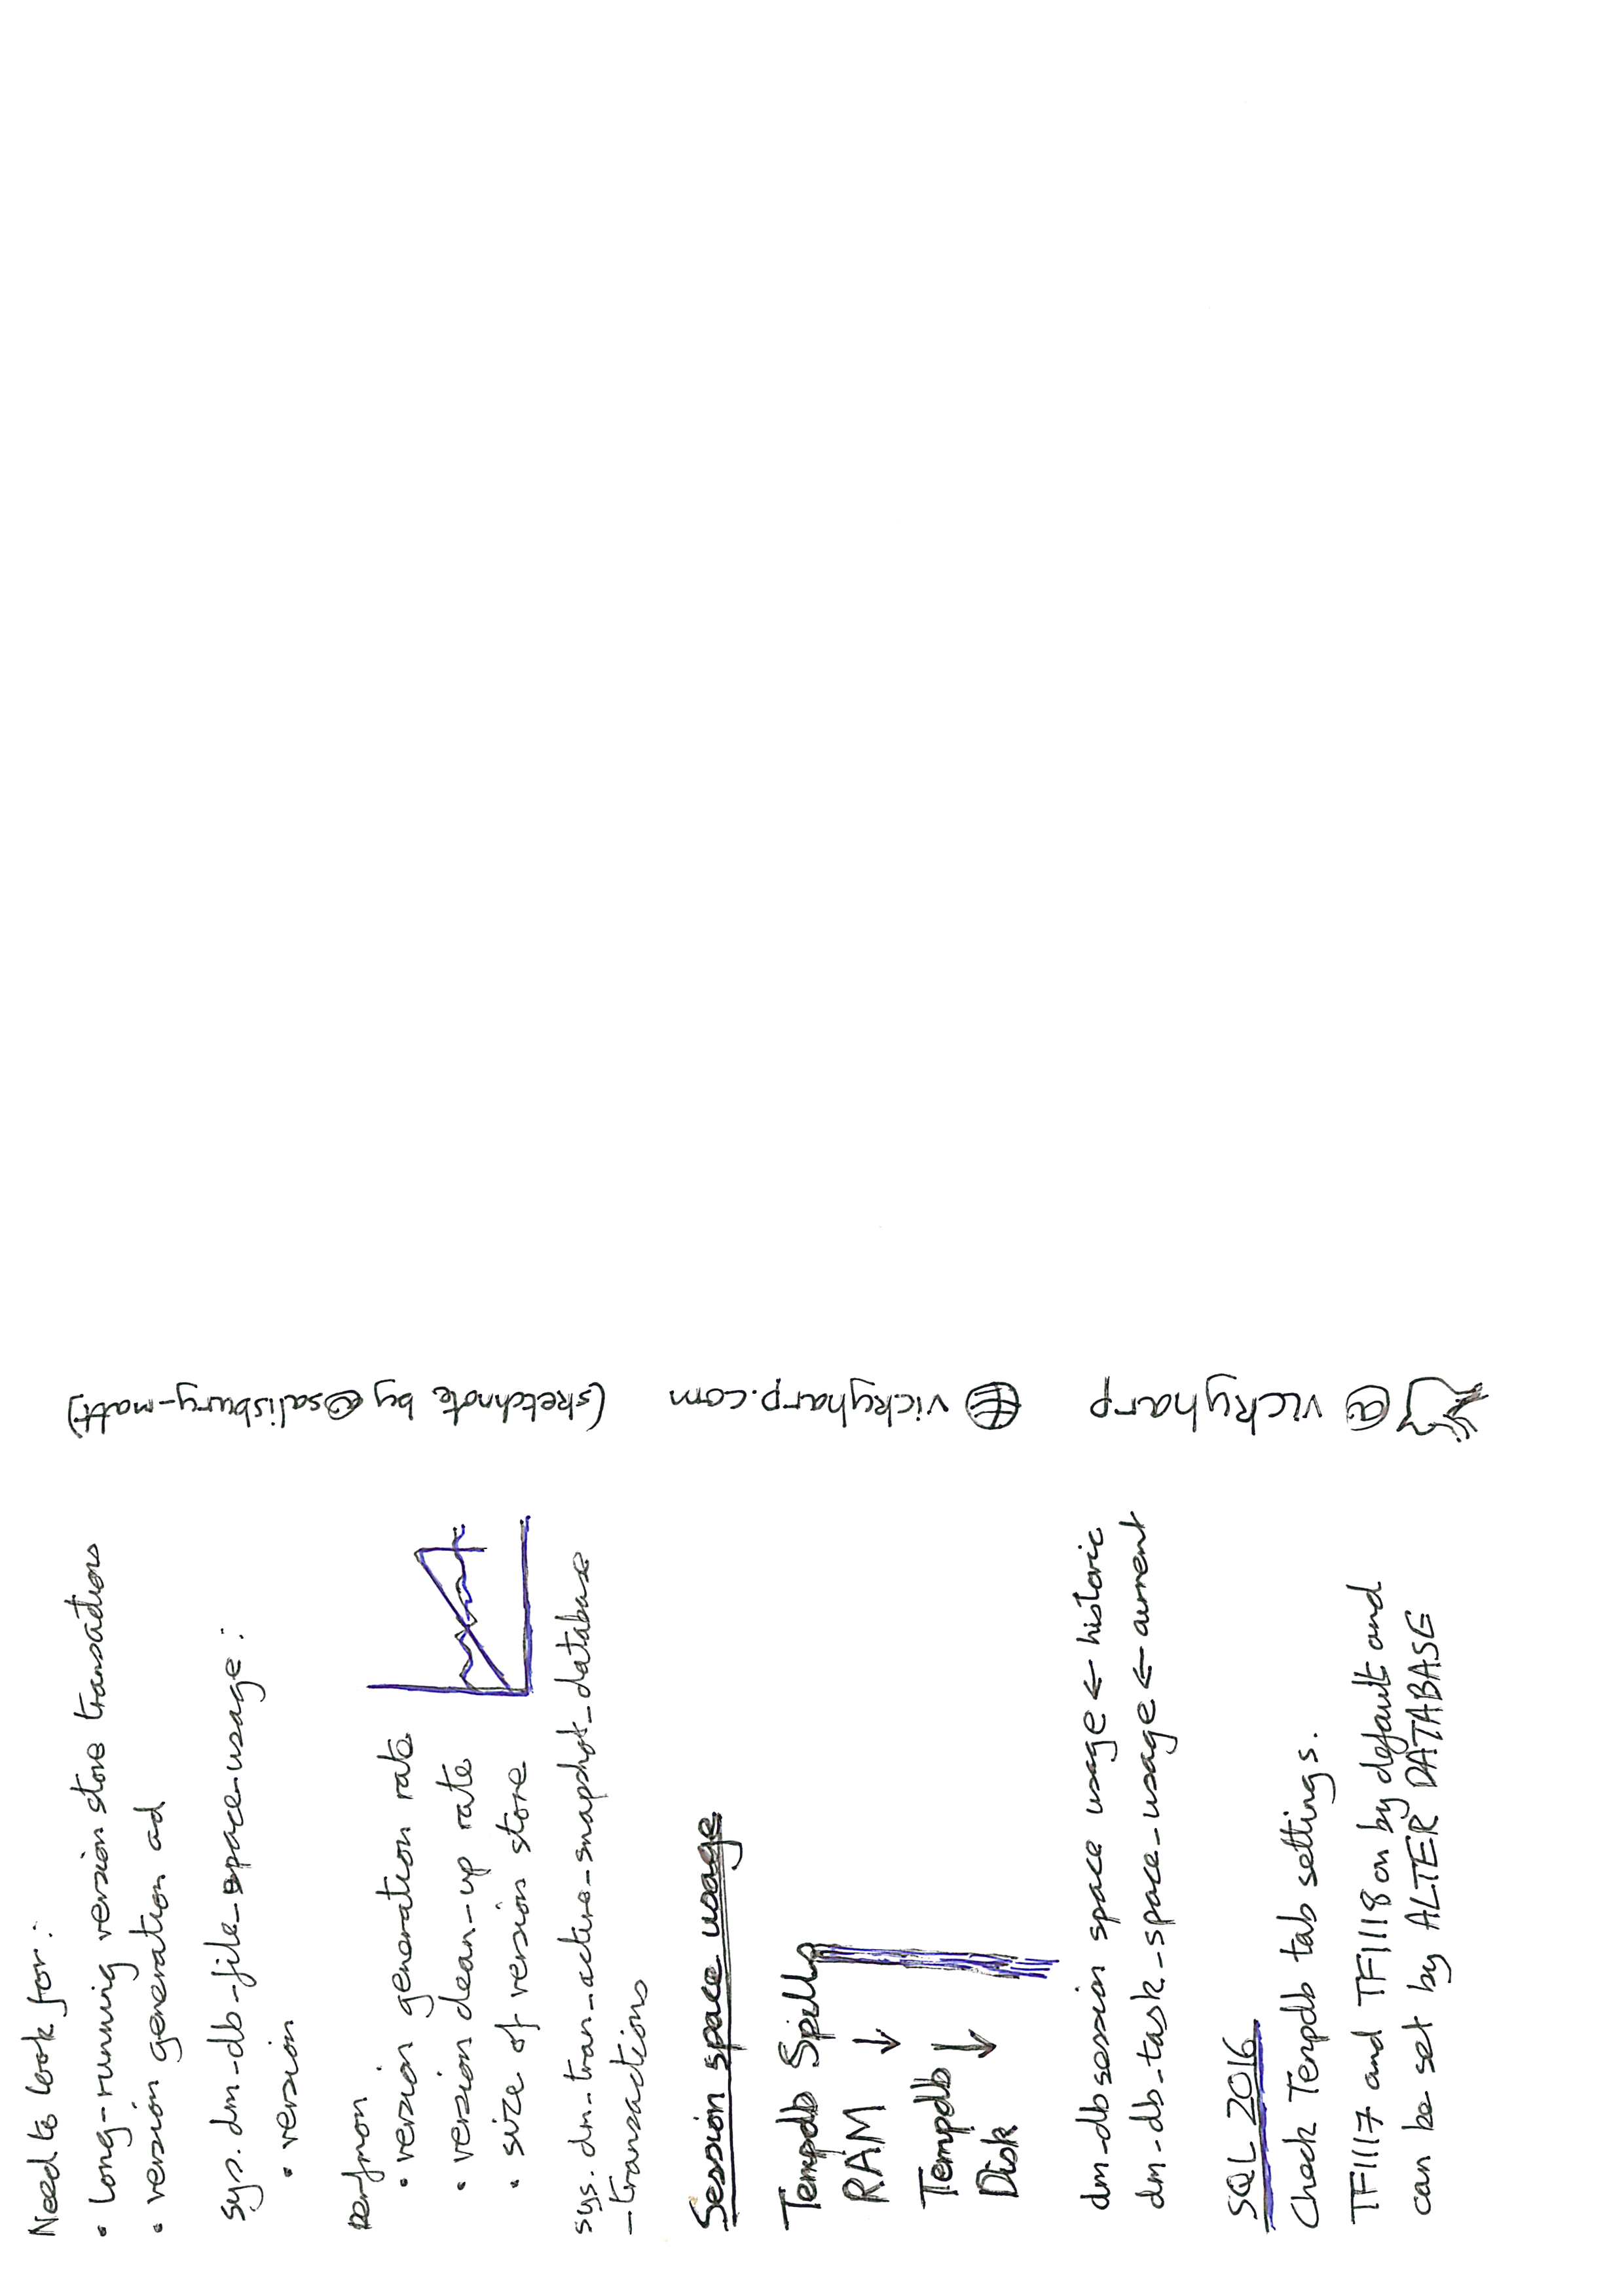 Need to look for:
• long-running version store transactions
• version generation ad
sys.dm_db_file_space_usage:
• version
perfmon
• version generation rate
• version clean-up rate
• size of version store
sys.dm_tran_active_snapshot_database
_transactions
Session space usage
Tempdb Spills
RAM ↓
Tempdb ↓
Disk
dm_db session space usage ← historic
dm_db_task_space_usage ← current
SQL 2016
Check Tempdb tab settings.
TF1117 and TF1118 on by default and
can be set by ALTER DATABASE
@vickyharp vickyharp.com (sketchnote by @salisbury_matt)